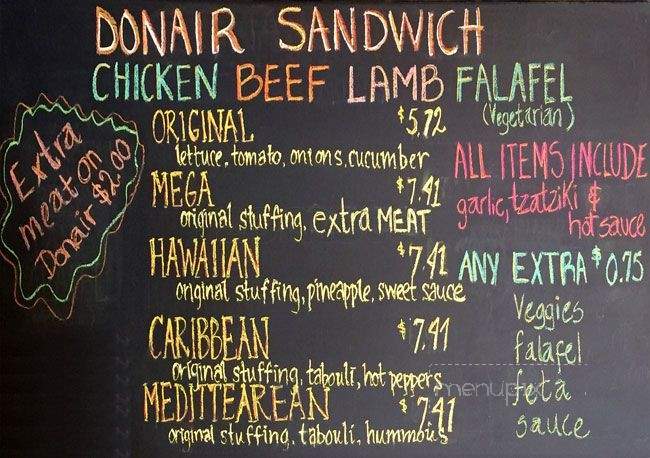 DONAIR SANDWICH
CHICKEN BEEF LAMB FALAFEL
(Vegetarian)
Extra
meat on
Donair $2.00
ORIGINAL $5.72
lettuce, tomato, onions, cucumber
MEGA $7.41
original stuffing, extra MEAT
HAWAIIAN $7.41
original stuffing, pineapple, sweet sauce
CARIBBEAN $7.41
original stuffing, tabouli, hot peppers
MEDITTEAREAN $7.41
original stuffing, tabouli, hummous
ALL ITEMS INCLUDE
garlic, tzatziki &
hot sauce
ANY EXTRA $0.75
Veggies
falafel
feta
sauce